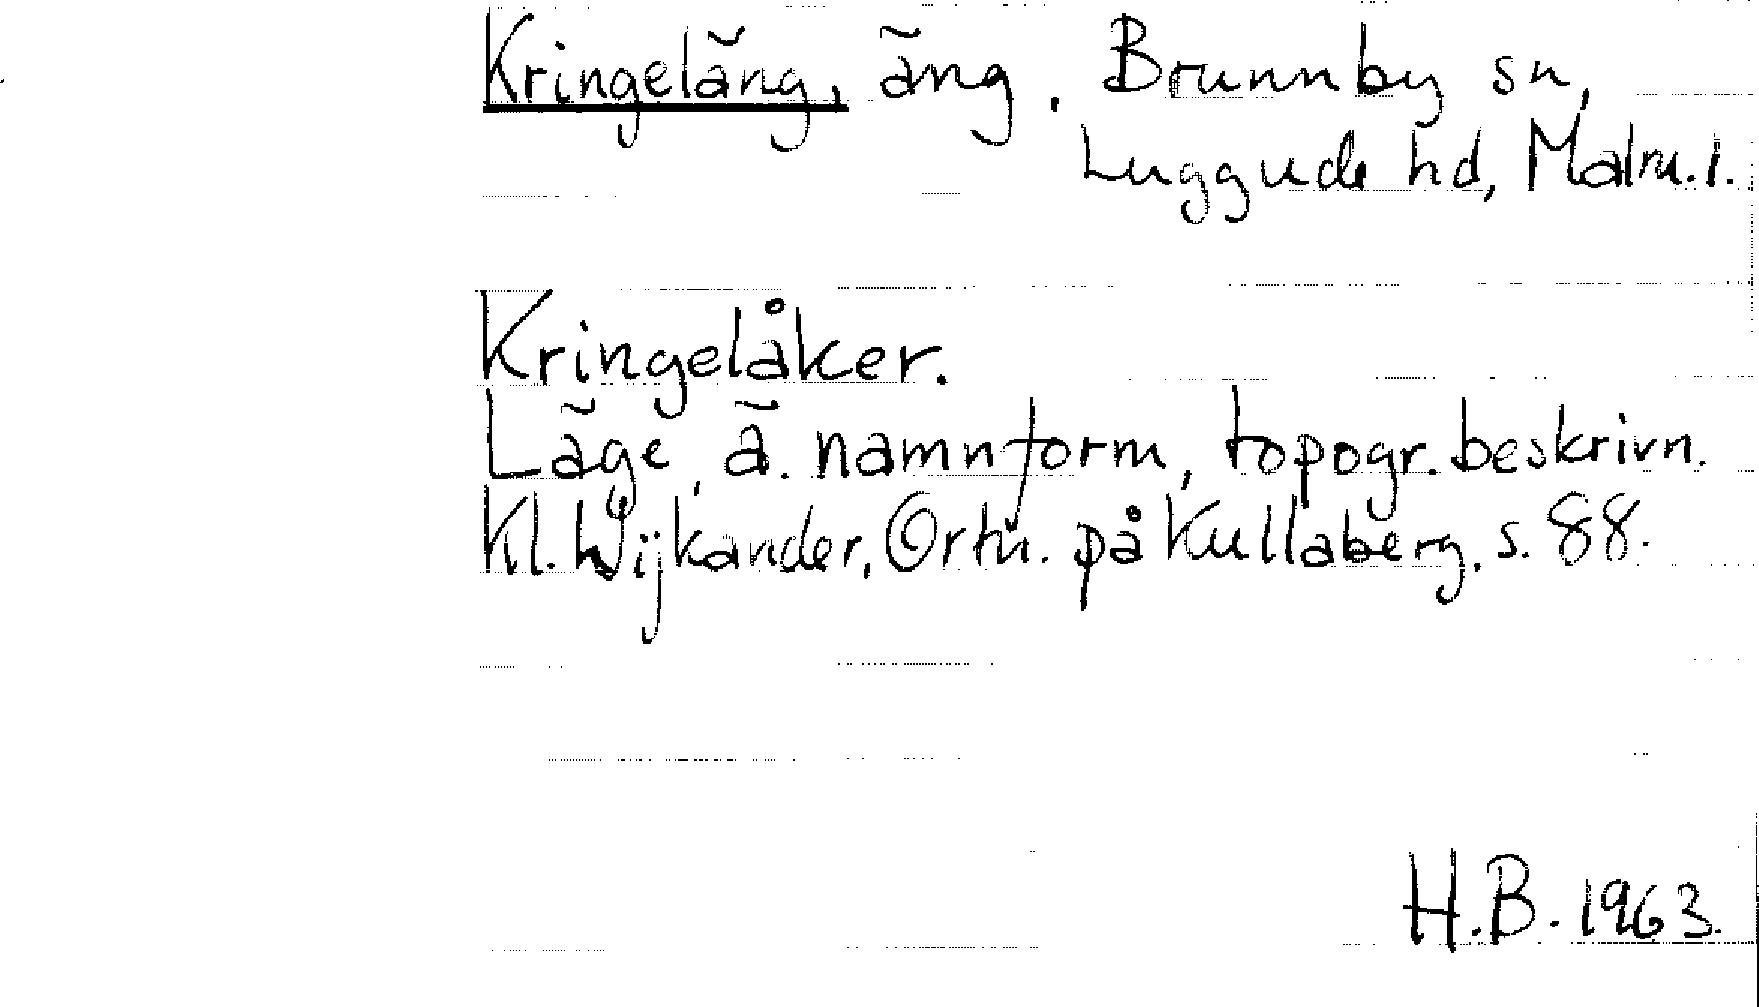 Kringeläng, äng. Brunnby sn,
Luggude hd, Malm. l.
Kringelåker.
Läge, ä. namnform, topogr. beskrivn.
Kl. Wijkander, Ortn. på Kullaberg, s. 88.
H.B. 1963.